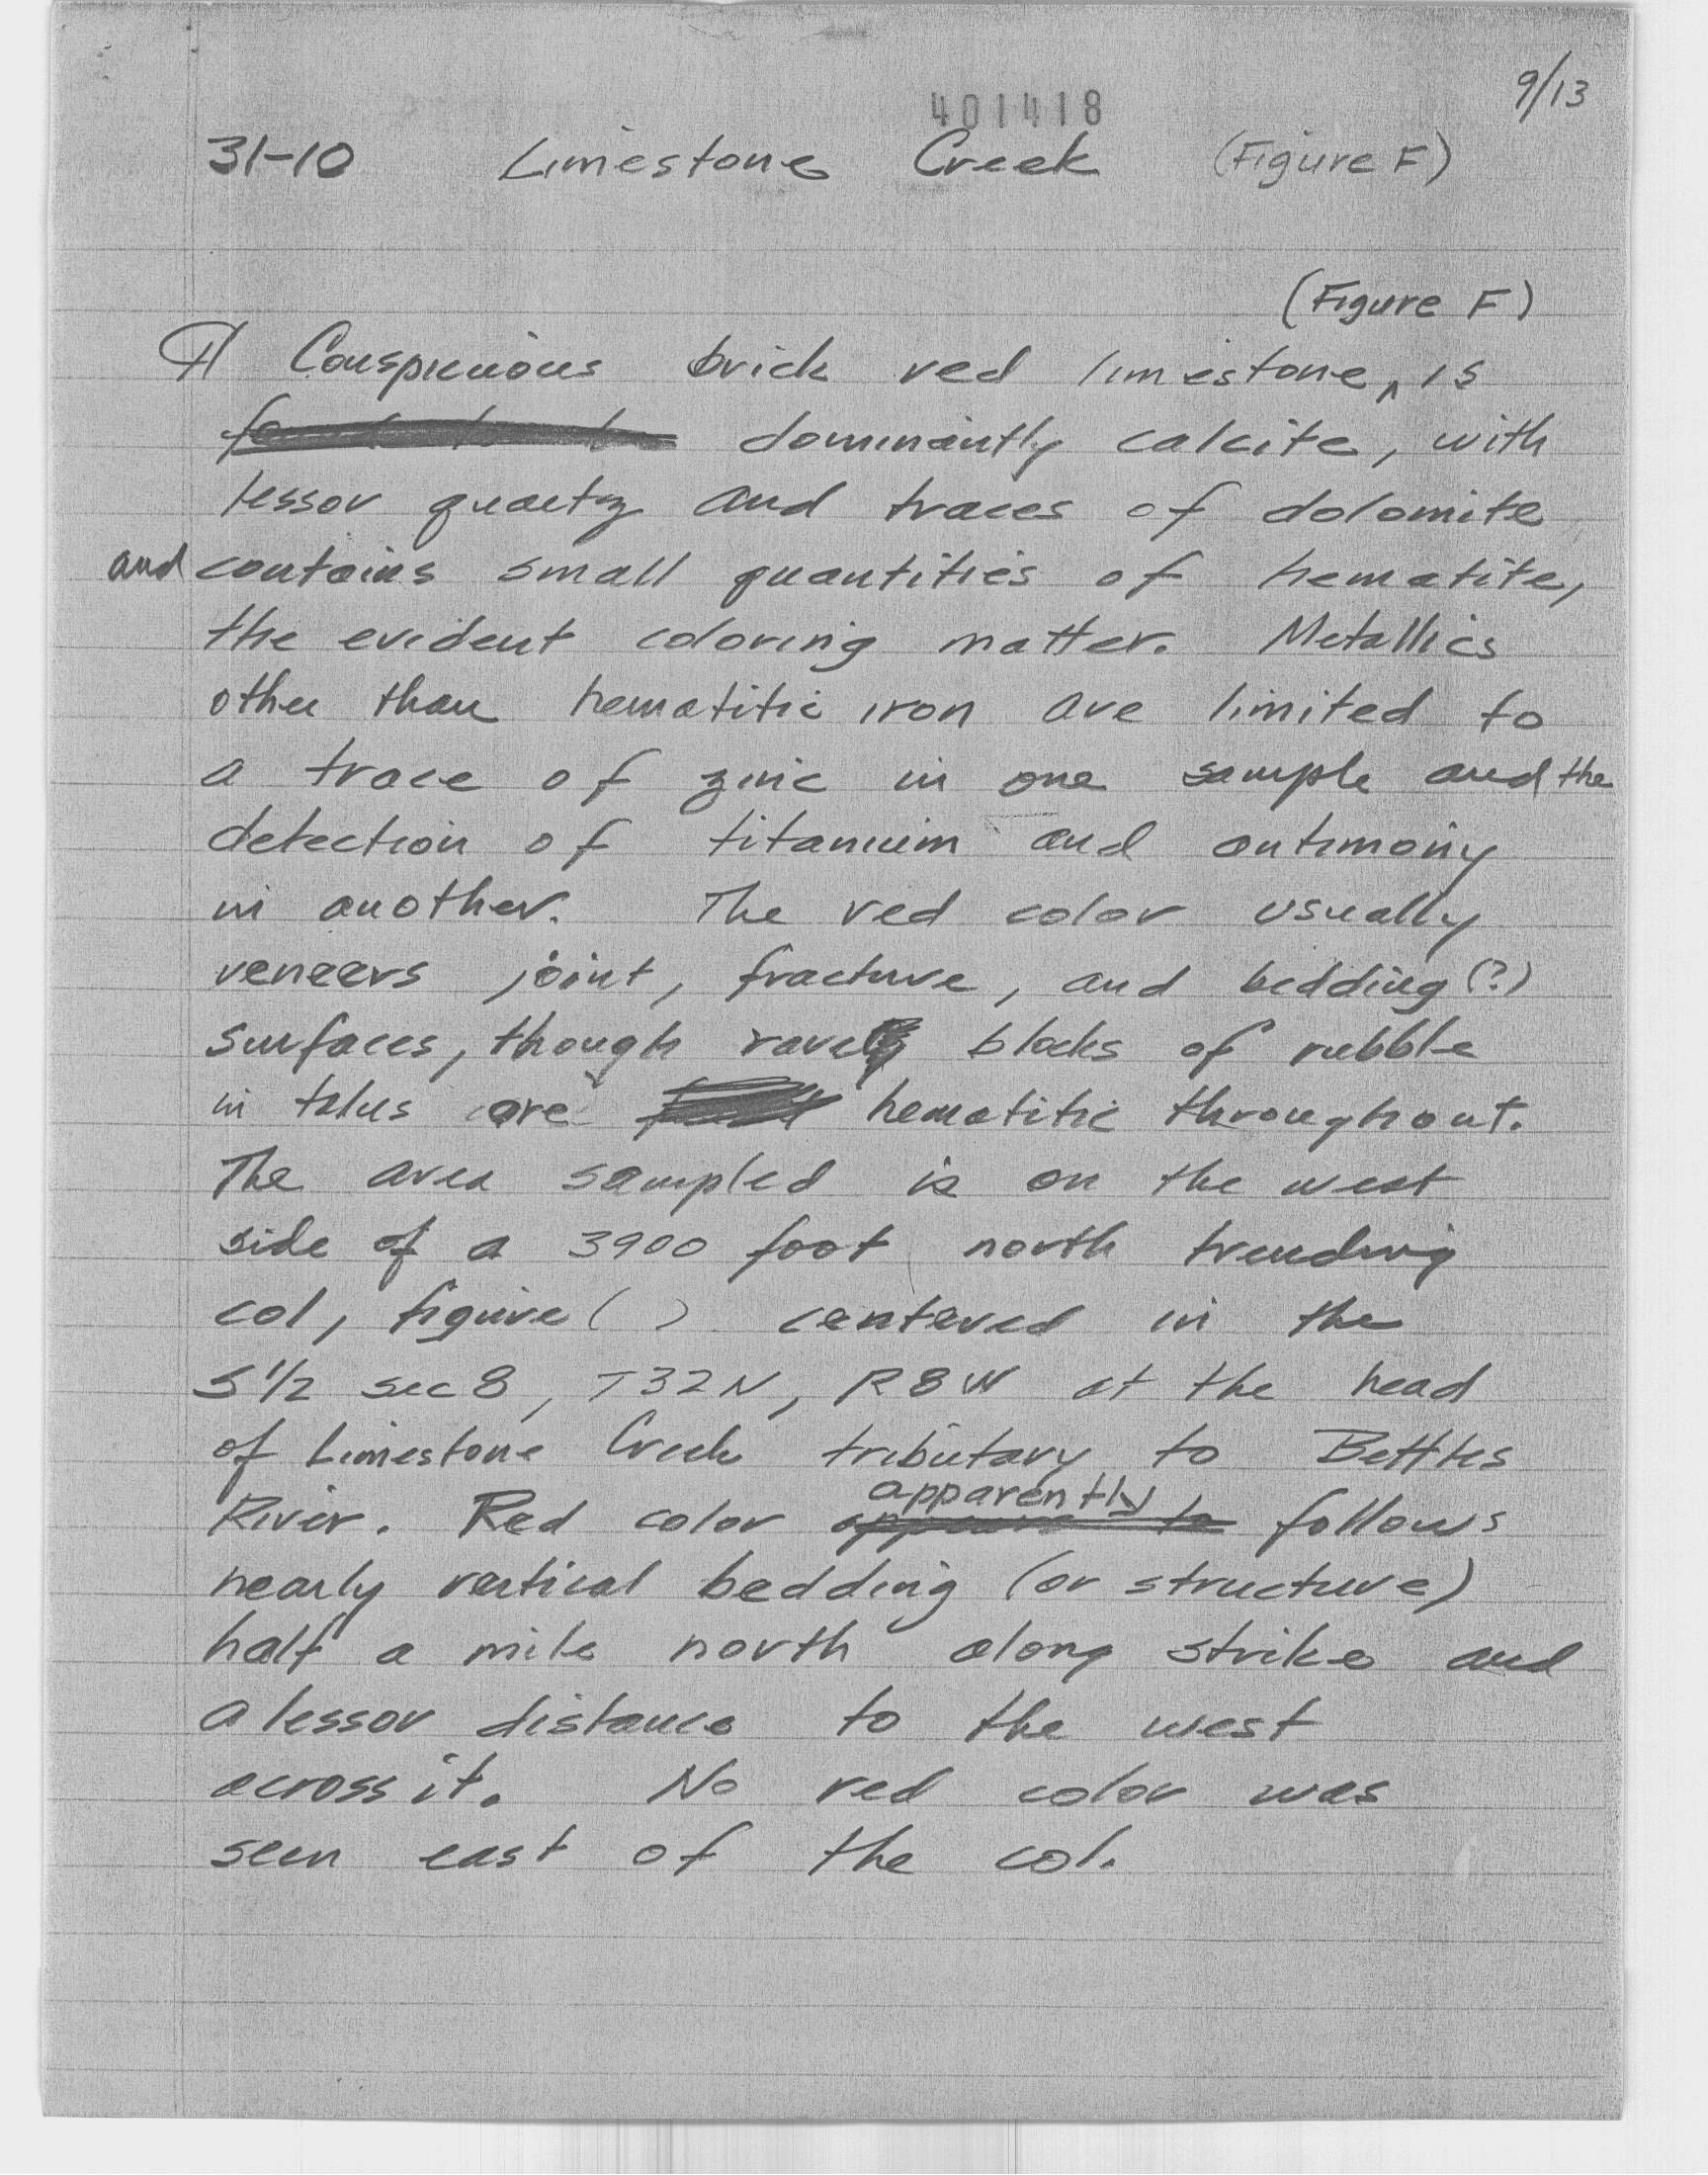 9/13
401418
31-10 Limestone Creek (Figure F)
(Figure F)
¶ Conspicuous brick red limestone ^ is
dominantly calcite, with
lessor quartz and traces of dolomite
and contains small quantities of hematite,
the evident coloring matter. Metallics
other than hematitic iron are limited to
a trace of zinc in one sample and the
detection of titanium and antimony
in another. The red color usually
veneers joint, fracture, and bedding (?)
surfaces, though rarely blocks of rubble
in talus are hematitic throughout.
The area sampled is on the west
side of a 3900 foot north trending
col, figure ( ) centered in the
S 1/2 sec 8, T32N, R8W at the head
of Limestone Creek tributary to Bettles
apparently
River. Red color appears to follows
nearly vertical bedding (or structure)
half a mile north along strike and
a lessor distance to the west
across it. No red color was
seen east of the col.